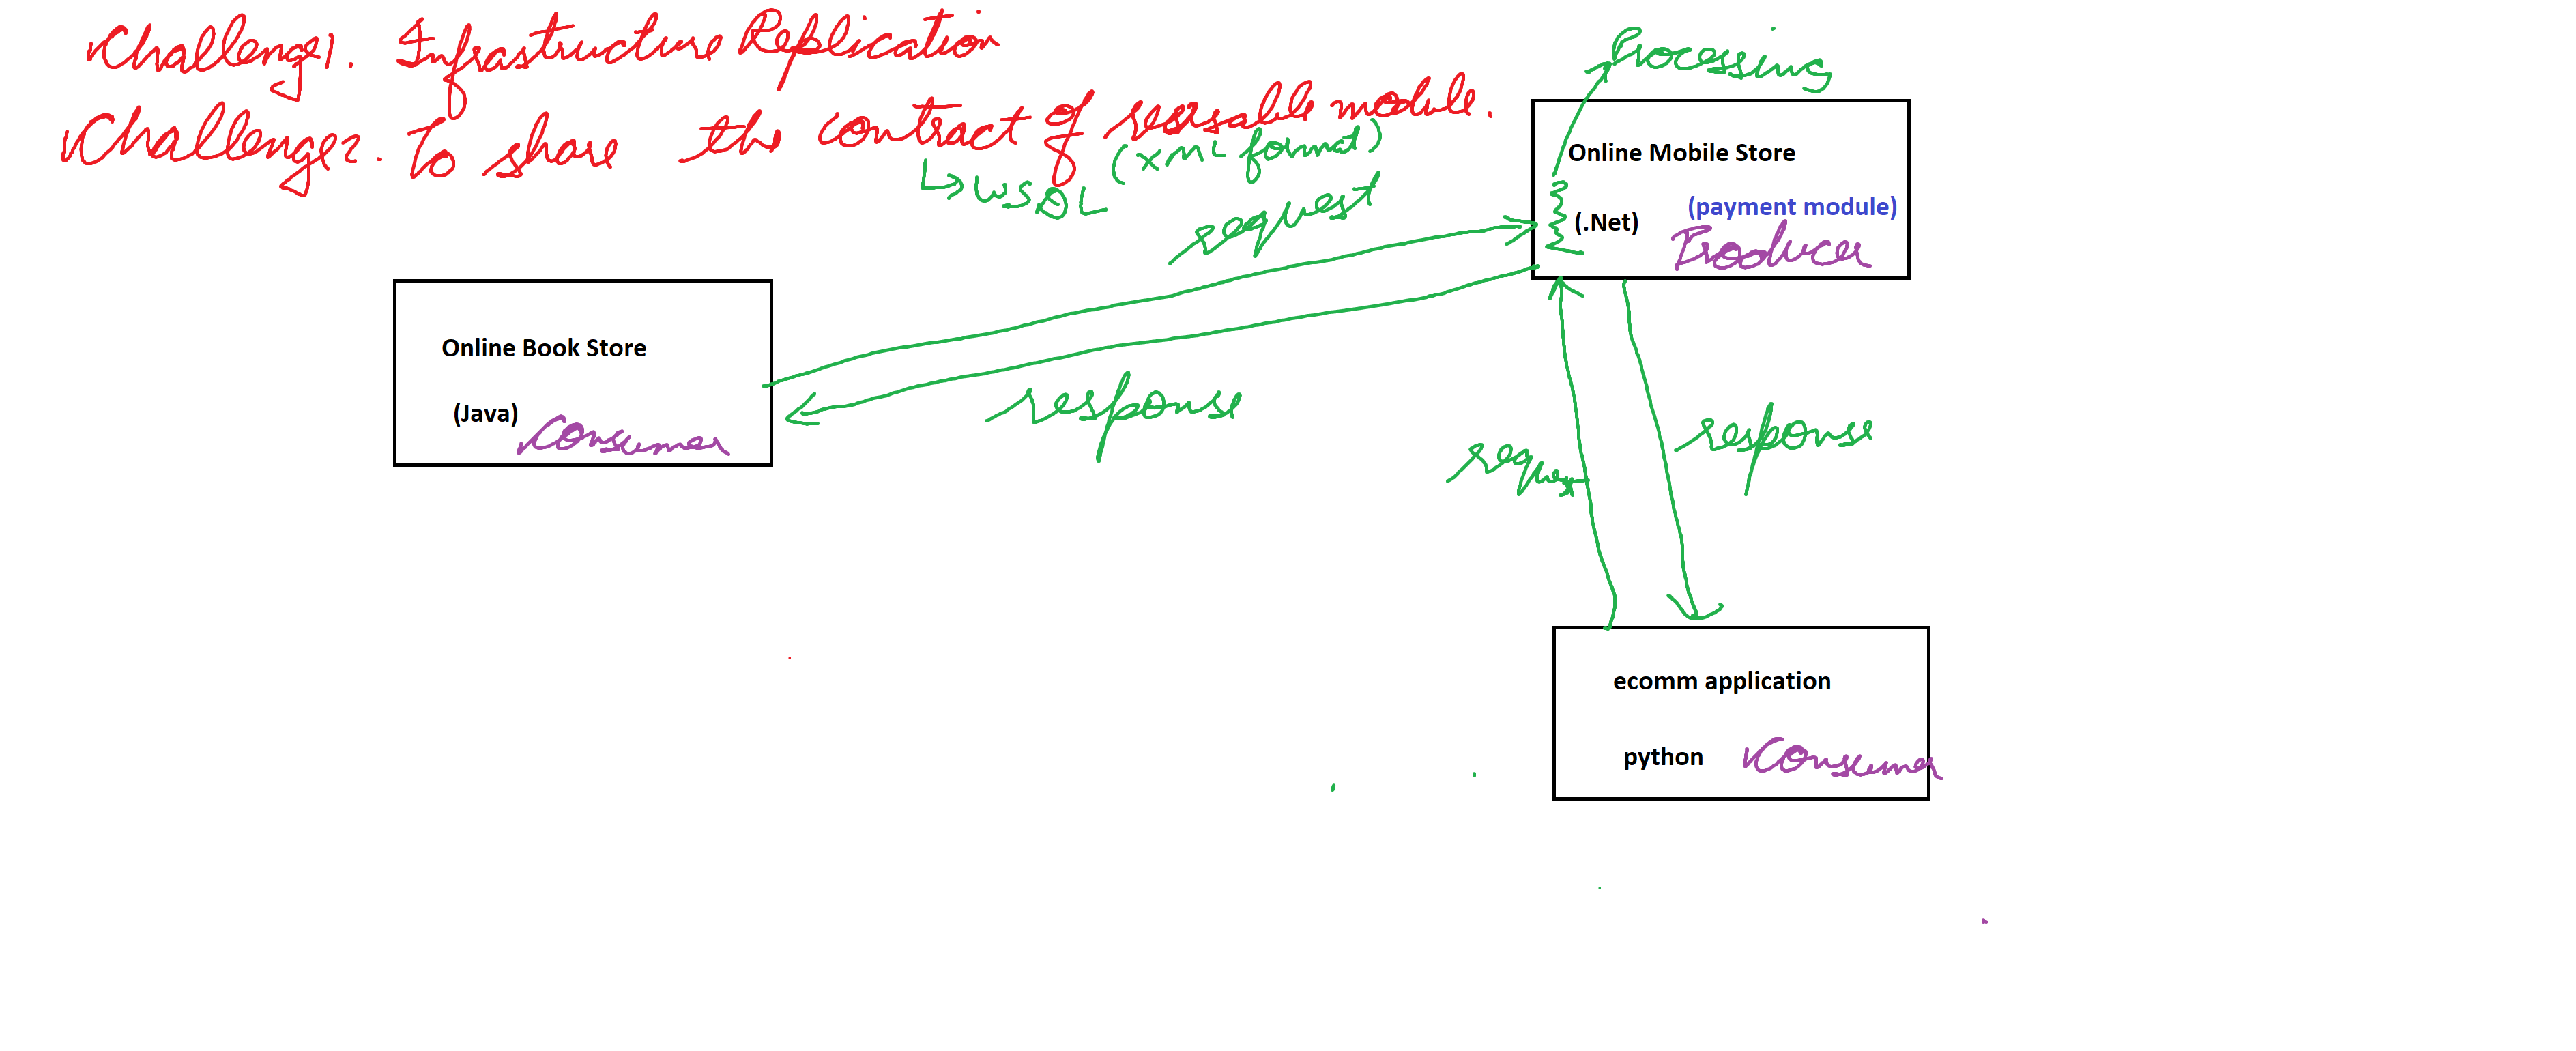 Challenge1. Infrastructure Replication
Challenge2. To share the contract of reusable module.
↳ WSDL (XML format)
Processing
Online Mobile Store
(.Net) (payment module)
Producer
request
response
Online Book Store
(Java) Consumer
request
response
ecomm application
python Consumer